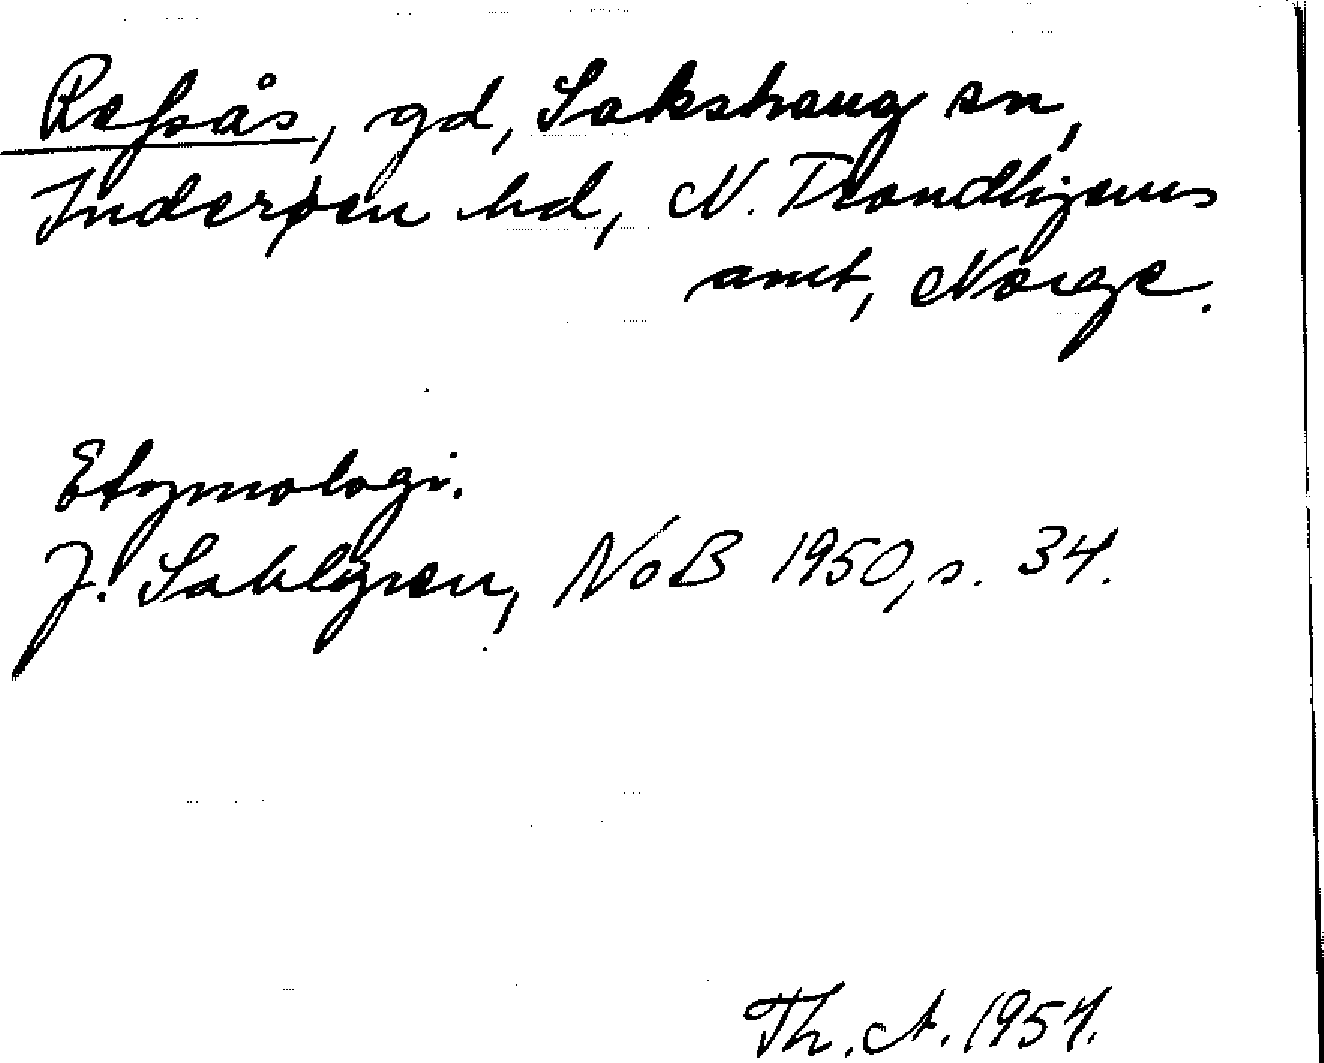 Refsås, gd, Sakshaug sn,
Inderøen hd, N. Trondhjems
amt, Norge.
Etymologi.
J. Sahlgren, NoB 1950, s. 34.
Th. A. 1954.